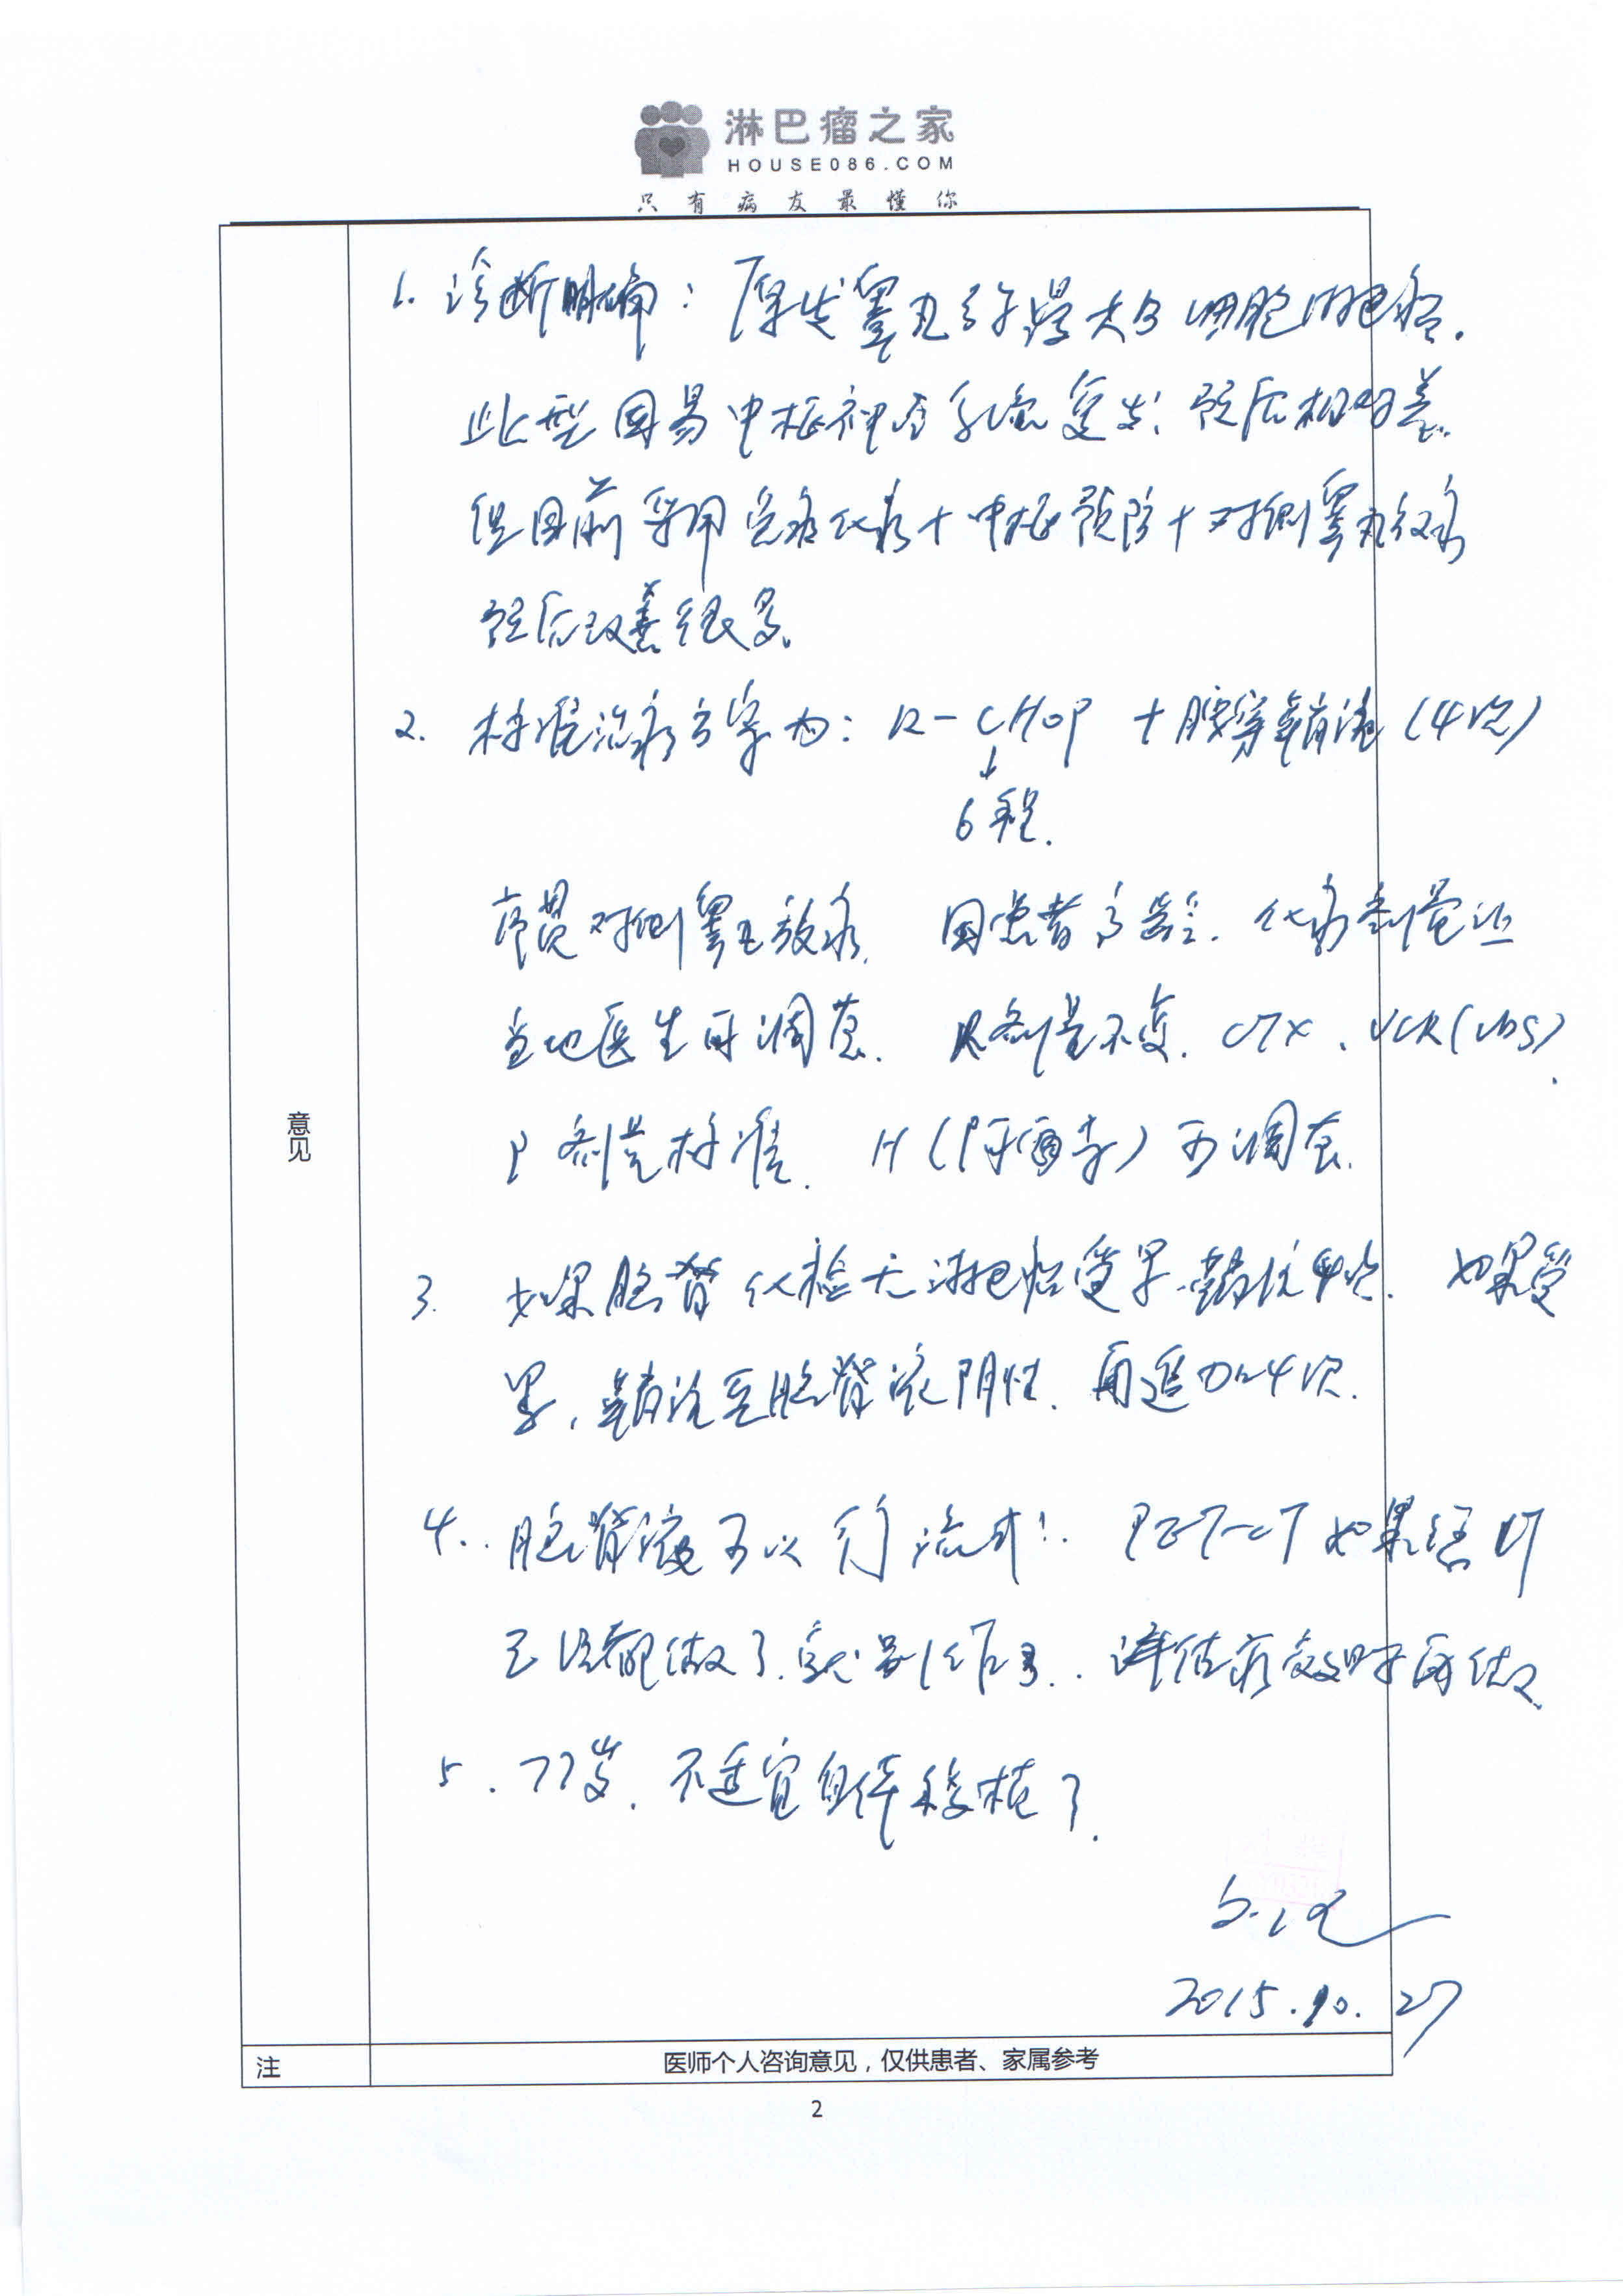 淋巴瘤之家
HOUSE086.COM
只有病友最懂你
1. 诊断明确：原发睾丸弥漫大B细胞淋巴瘤.
此型因易中枢神经系统复发, 预后相对差.
但目前采用免疫化疗+中枢预防+对侧睾丸放疗
预后改善很多.
2. 标准治疗方案为：R-CHOP + 腰穿鞘注(4次)
↓
6程.
序贯对侧睾丸放疗. 因患者高龄. 化疗剂量让
当地医生可调整. R剂量不变. CTX、VCR(VDS)、
P剂量标准. H(阿霉素)可调整.
意见
3. 如果脑脊化检无淋巴瘤受累鞘注4次. 如果受
累, 鞘注至脑脊液阴性. 再追加4次.
4. 脑脊液可以行流式! PET-CT如果活疗
已经都做了. 就别作了. 评估疗效时再做.
5. 77岁. 不适宜自体移植了.
2015.10.27
注 医师个人咨询意见，仅供患者、家属参考
2